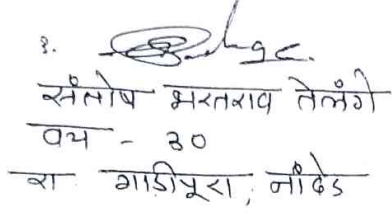 १.
संतोष भरतराव तेलंगे
वय - ३०
रा गाडीपूरा, नांदेड